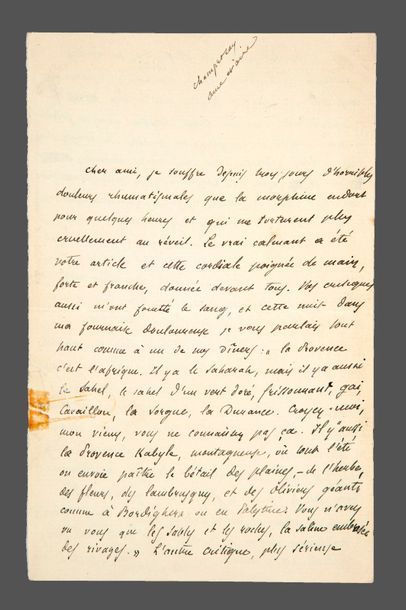 Champrosay
Cher ami, je souffre depuis trois jours d'horribles
douleurs rhumatismales que la morphine endort
pour quelques heures et qui me torturent plus
cruellement au réveil. Le vrai calmant a été
votre article et cette cordiale poignée de main,
forte et franche, donnée devant tous. Vos critiques
aussi m'ont fouetté le sang, et cette nuit dans
ma fournaise douloureuse je vous parlais tout
haut comme à un de mes dîners : « la Provence
c'est l'afrique. Il y a le Saharah, mais il y a aussi
le Sahel, le sahel d'un vert doré, frissonnant, gai,
Cavaillon, la Sorgue, la Durance. Croyez-moi,
mon vieux, vous ne connaissez pas ça. Il y a aussi
la Provence Kabyle, montagneuse, où tout l'été
on envoie paître le bétail des plaines, - de l'herbe,
des fleurs, des lambrusques, et des oliviers géants
comme à Bordighera ou en Palestine. Vous n'avez
vu vous que les sables et les roches, la saline embrasée
des rivages. » L'autre critique, plus sérieuse